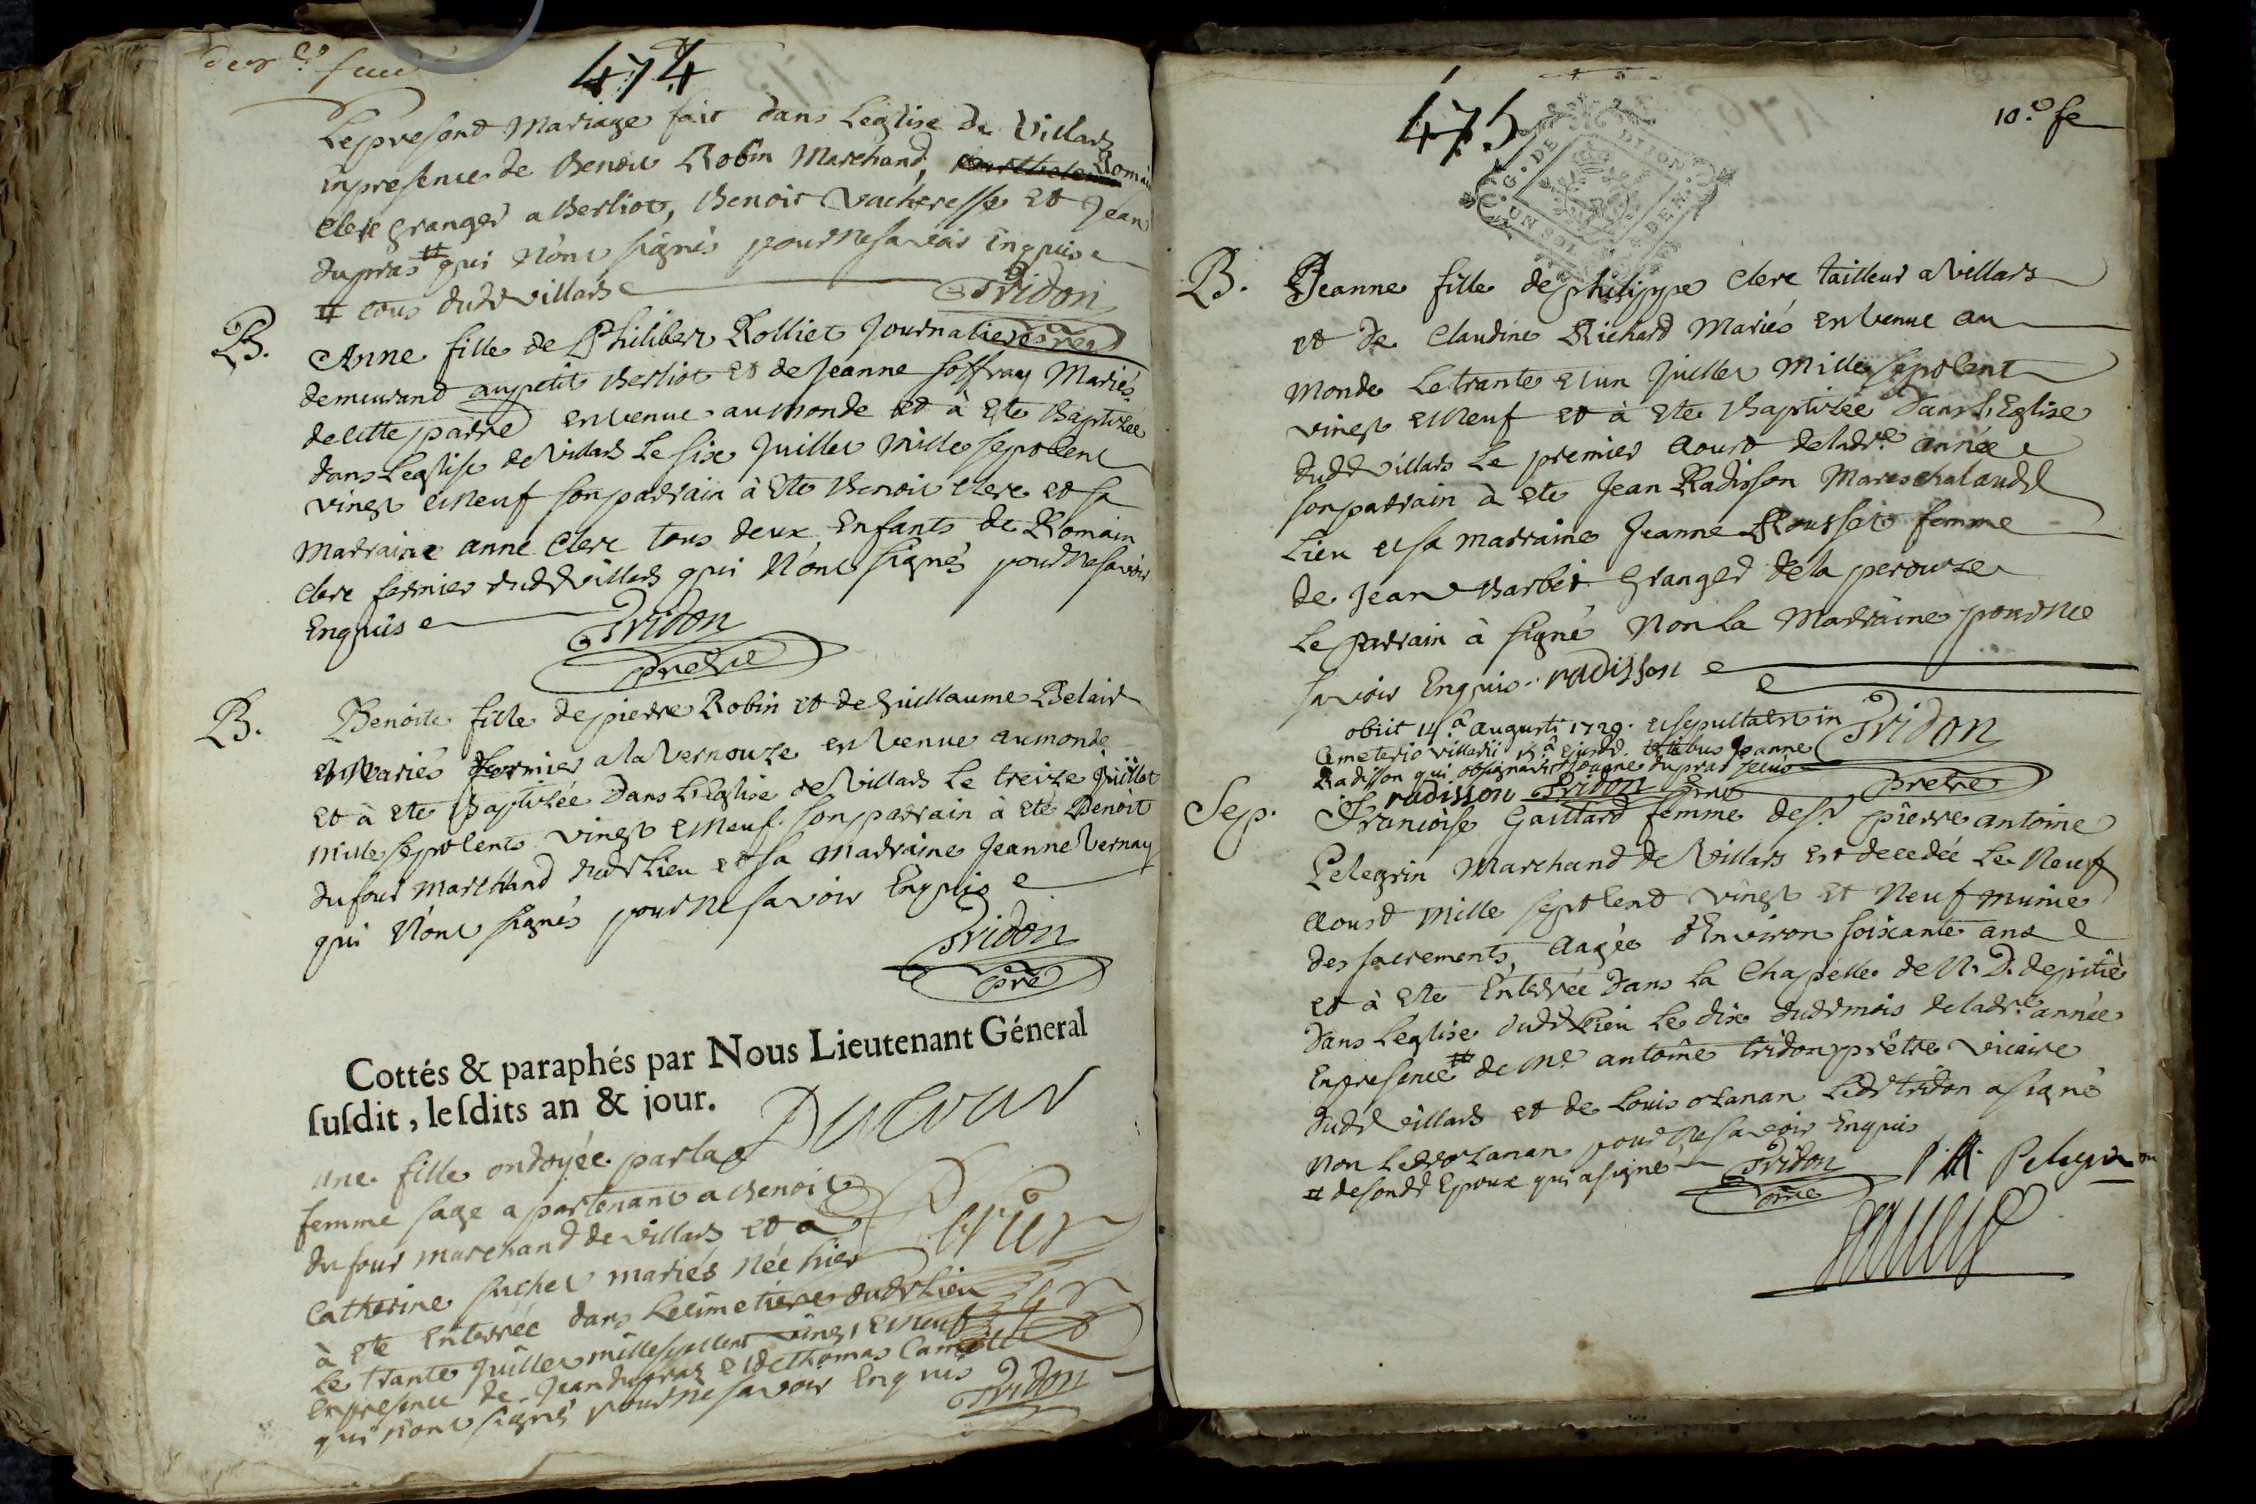 474
Le present Mariage fait dans Leglise de Villars
en presence de Benoit Robin Marchand, Romain
Clerc granger a Berliot, Benoit Vacheresse et Jean
dupras # qui N'ont signés pour ne savoir Enquis
# tous dudt villars
Tridon
B.
Anne fille de Philibert Rolliet Journalier
demeurand au petit Berliot et de Jeanne Soffray Mariés
de cette parre en venue au monde et à ete Baptizée
dans Leglise de Villars le six Juillet mille sept cent
vingt et Neuf son parrain à ete Benoit Clerc et sa
Marraine anne Clerc tous deux Enfants de Romain
Clerc fermier dudt Villars qui N'ont signés pour Ne savoir
Enquis
Tridon
pretre
B.
Benoite fille de pierre Robin et de Guillaume Belair
Mariés fermier a la Vernouze en Venue au monde
et à ete Baptizée Dans L'Eglise de Villars Le treize Juillet
Mille sept cents vingt et Neuf. son parrain à ete Benoit
dufour Marchand dudt Lieu et sa Marraine Jeanne Vernay
qui N'ont signés pour Ne savoir Enquis
Tridon
pre
Cottés & paraphés par Nous Lieutenant Géneral
ſuſdit, leſdits an & jour.
une fille ondoyée par la
femme sage apartenant a Benoit
dufour marchand de villars et a
Catherine suchet mariés Née hier
à ete Enterrée dans Le cimetiere dudt Lieu
Le trante Juillet mille sept cent vingt et Neuf
En presence de Jean dupras et de thomas
qui N'ont signés pour ne savoir Enquis
Tridon
475
10.e fe
G. DE DIJON
UN SOL 4 DEN.
B.
Jeanne fille de philippe Clerc tailleur a Villars
et de Claudine Richard Mariés en Venue au
Monde Le trante et un Juillet Mille sept Cent
vingt et Neuf et à ete Baptizée dans L'Eglise
dudt Villars Le premier Aoust de ladte année
son parrain à ete Jean Radisson Mareschal audt
Lieu et sa marraine Jeanne Rousset femme
de Jean Barbet Granger de la perouze
Le parrain à signé Non La Marraine pour Ne
savoir Enquis. radisson
obiit 14.a augusti 1729. et sepulta est in
Cemeterio villarii 15.a ejusd. testibus Joanne
Radisson qui obsignavit et Joanne dupras
radisson Tridon pre
Tridon
Pretre
Sep.
Francoise Gaillard femme de sr pierre antoine
Pelegrin Marchand de Villars est decedée Le Neuf
Aoust mille sept Cent vingt et Neuf munie
des sacrements, Aagée d'Environ soixante ans
et à ete Enterrée dans La Chapelle de N. D. de pitié
dans Leglise dudt Lieu Le dix dudt mois de ladte année
En presence # de Me antoine tridon prêtre vicaire
dudt Villars et de Louis ozanan Ledt tridon a signé
Non Ledt ozanan pour Ne savoir Enquis
# de sondt Epoux qui a signé
Tridon
pre
Pelegrin